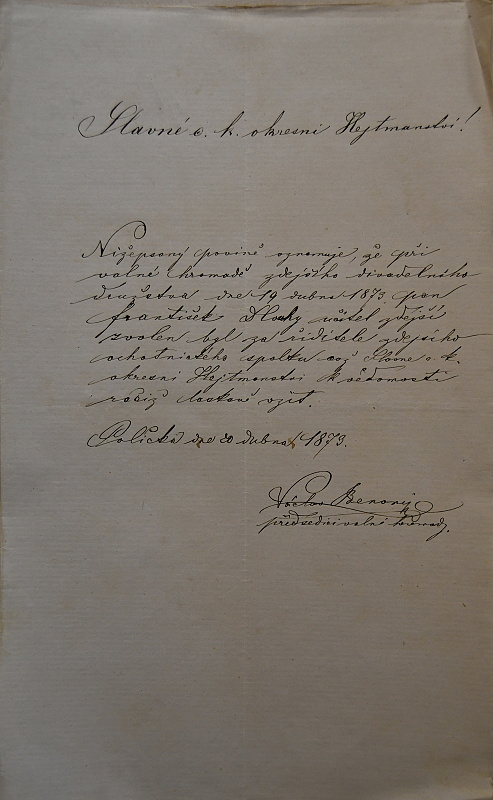 Slavné c. k. okresní Hejtmanství!
Nížepsaný povině oznamuje, že při
valné hromadě zdejšího divadelního
družstva dne 19 dubna 1873 pan
František učitel zdejší
zvolen byl za řiditele zdejšího
ochotnického spolku což Slavné c. k.
okresní Hejtmanství k vědomosti
račiž laskavě vzít.
Polička dne 20 dubna 1873.
Václav Benonij
předsedící valní hromady.